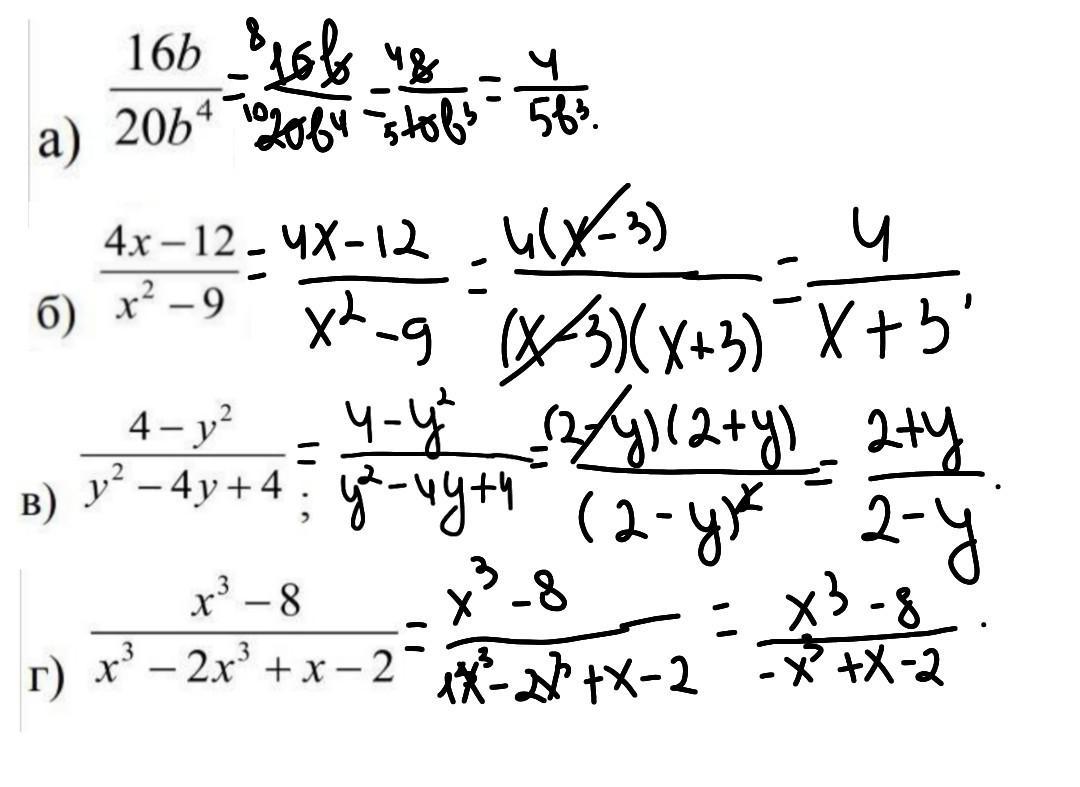 а) 16b/20b⁴ = 16b/20b⁴ (8, 10) = 8/10b³ (4, 5) = 4/5b³.
б) (4x – 12)/(x² – 9) = (4x – 12)/(x² – 9) = 4(x – 3)/((x – 3)(x + 3)) = 4/(x + 3),
в) (4 – y²)/(y² – 4y + 4) ; = (4 – y²)/(y² – 4y + 4) = (2 – y)(2 + y)/(2 – y)² = (2 + y)/(2 – y).
г) (x³ – 8)/(x³ – 2x³ + x – 2) = (x³ – 8)/(1x³ – 2x³ + x – 2) = (x³ – 8)/(–x³ + x – 2).